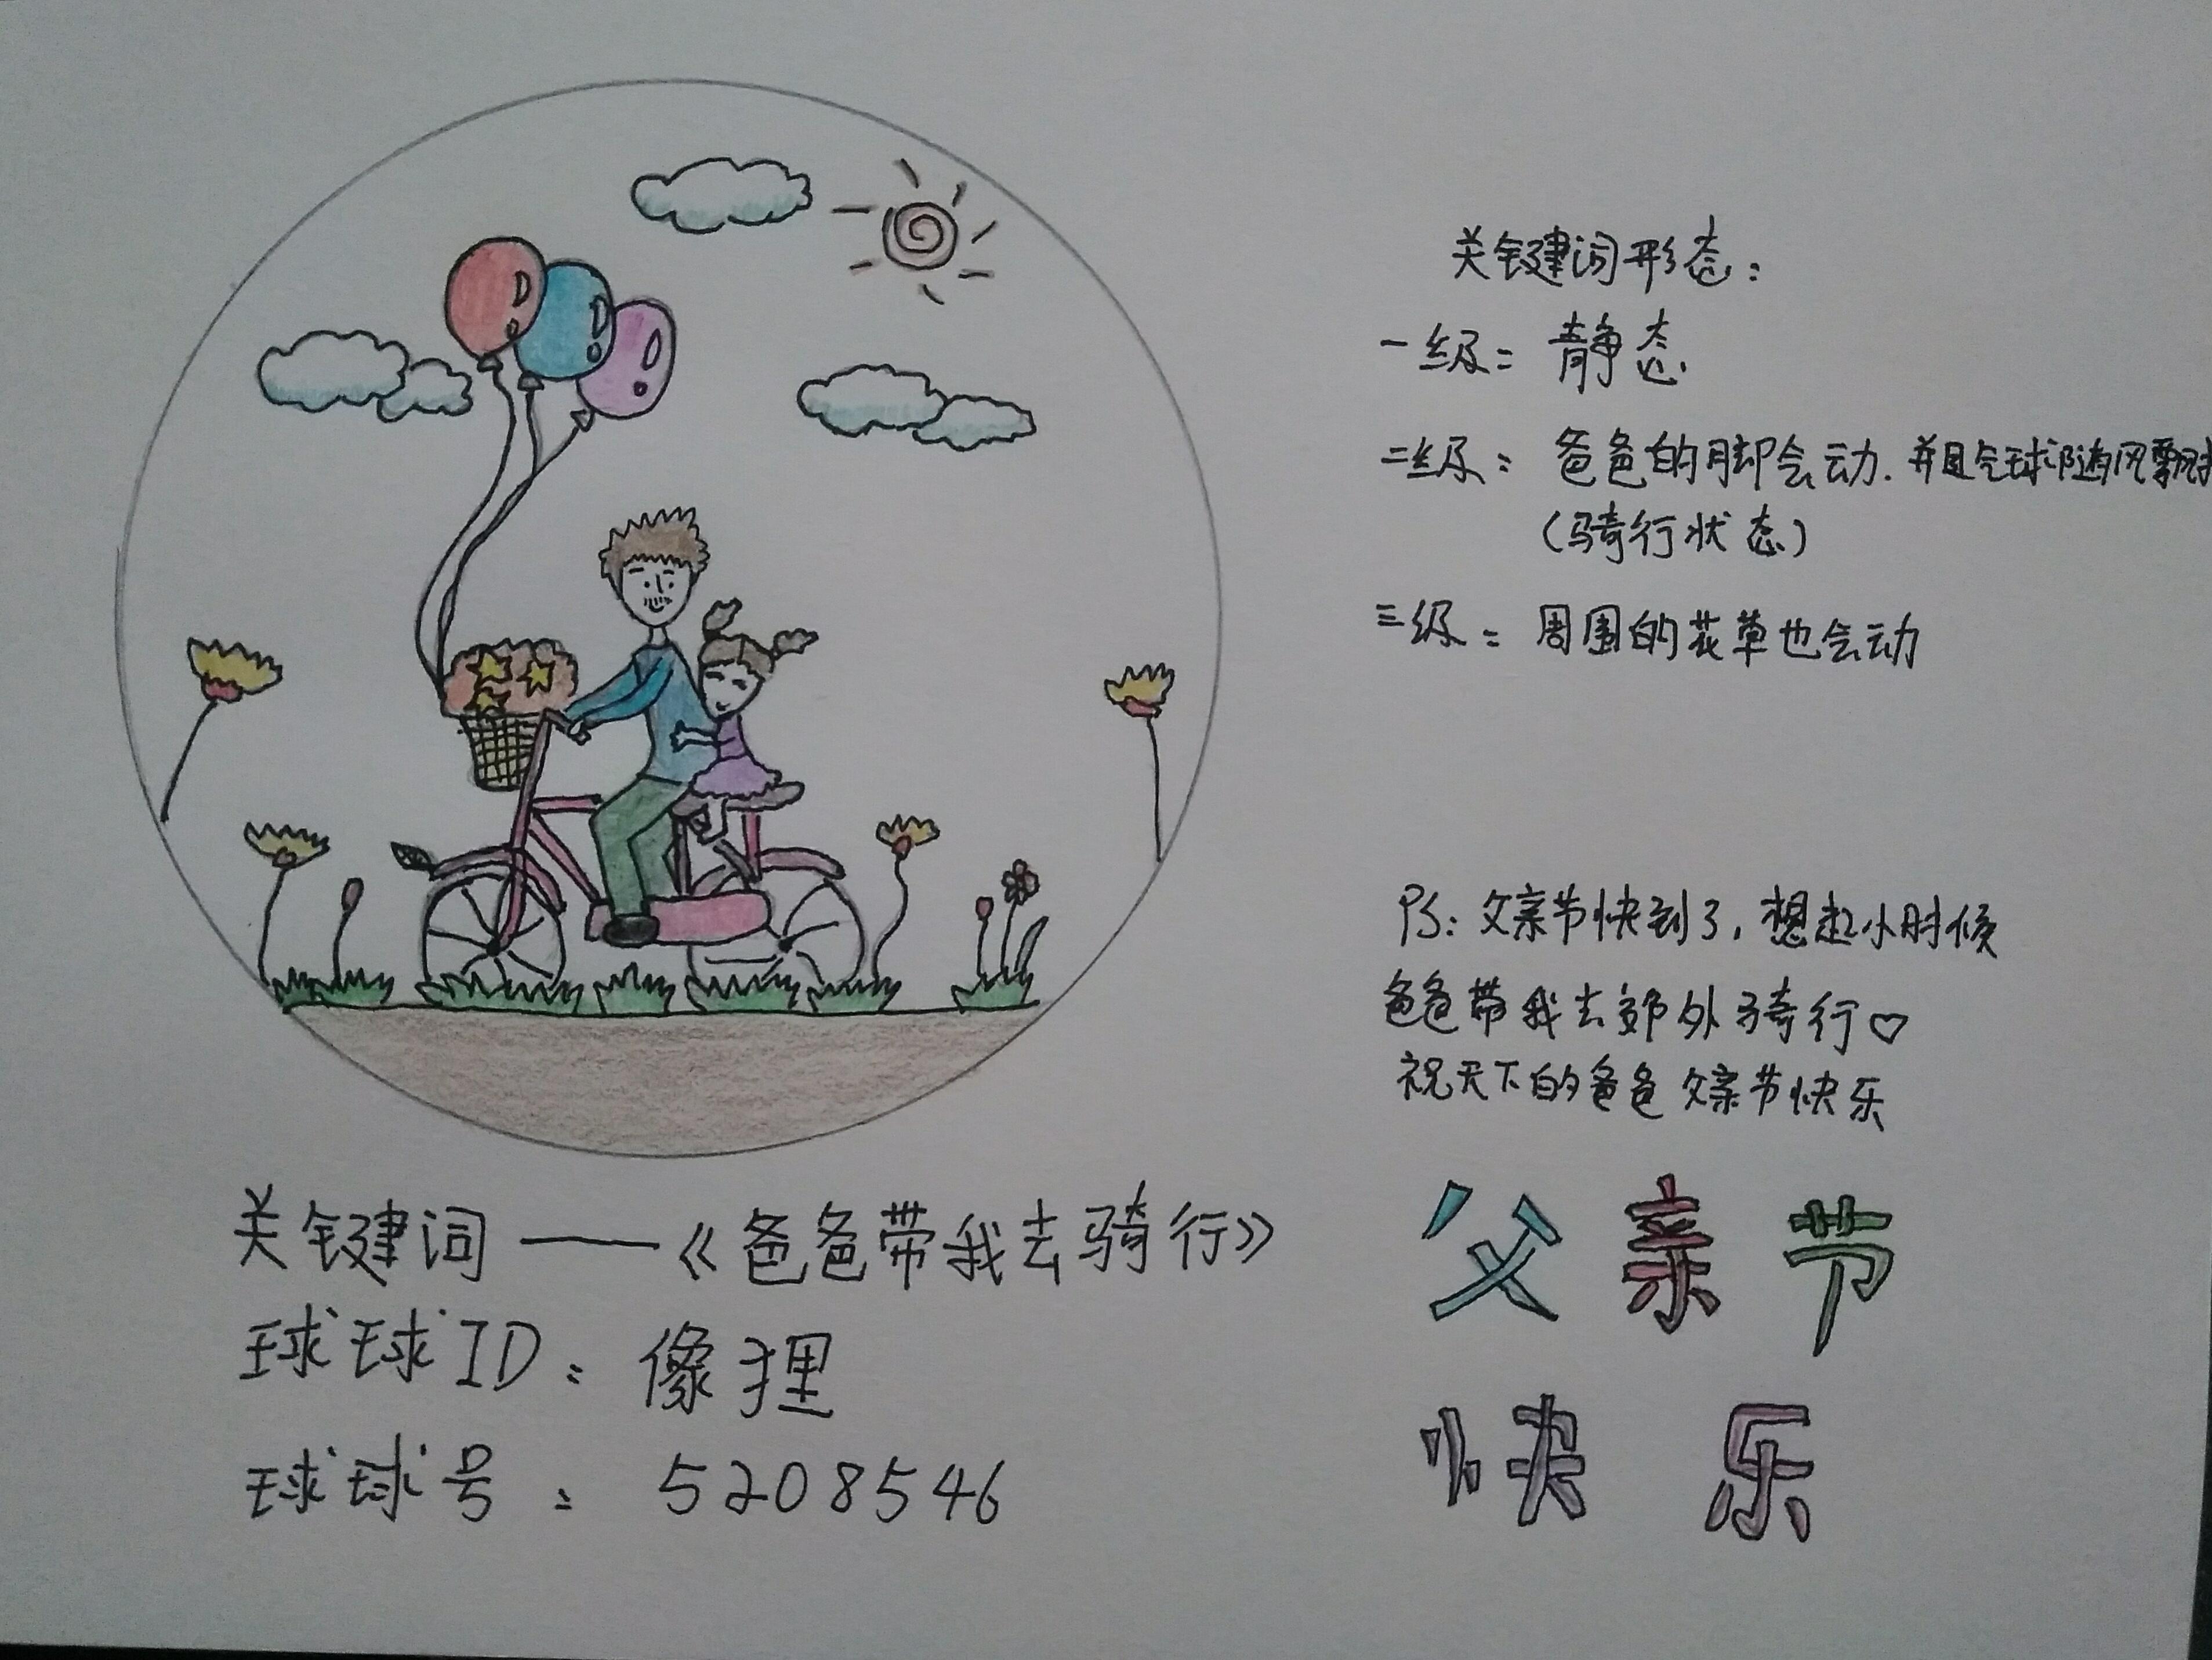 关键词形态：
一级：静态
二级：爸爸的脚会动.并且气球随风飘
（骑行状态）
三级：周围的花草也会动
PS：父亲节快到了，想起小时候
爸爸带我去郊外骑行♡
祝天下的爸爸父亲节快乐
父亲节
快乐
关键词——《爸爸带我去骑行》
球球ID：像狸
球球号：5208546